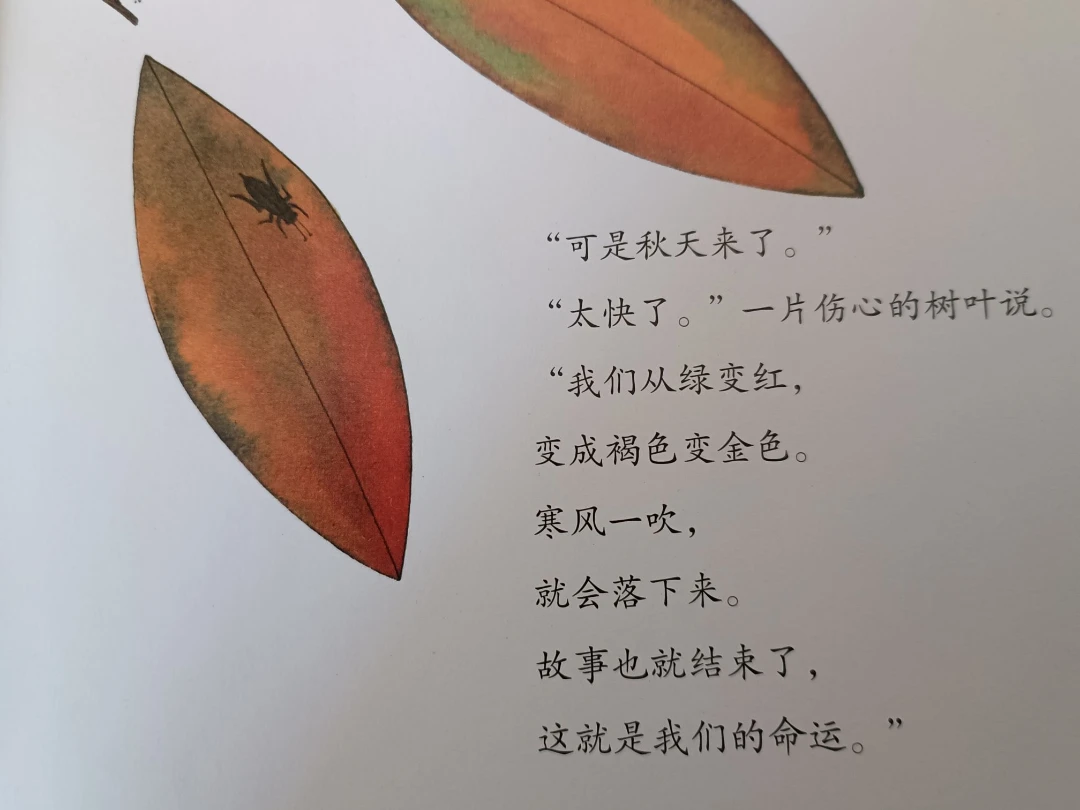 “可是秋天来了。”
“太快了。”一片伤心的树叶说。
“我们从绿变红，
变成褐色变金色。
寒风一吹，
就会落下来。
故事也就结束了，
这就是我们的命运。”